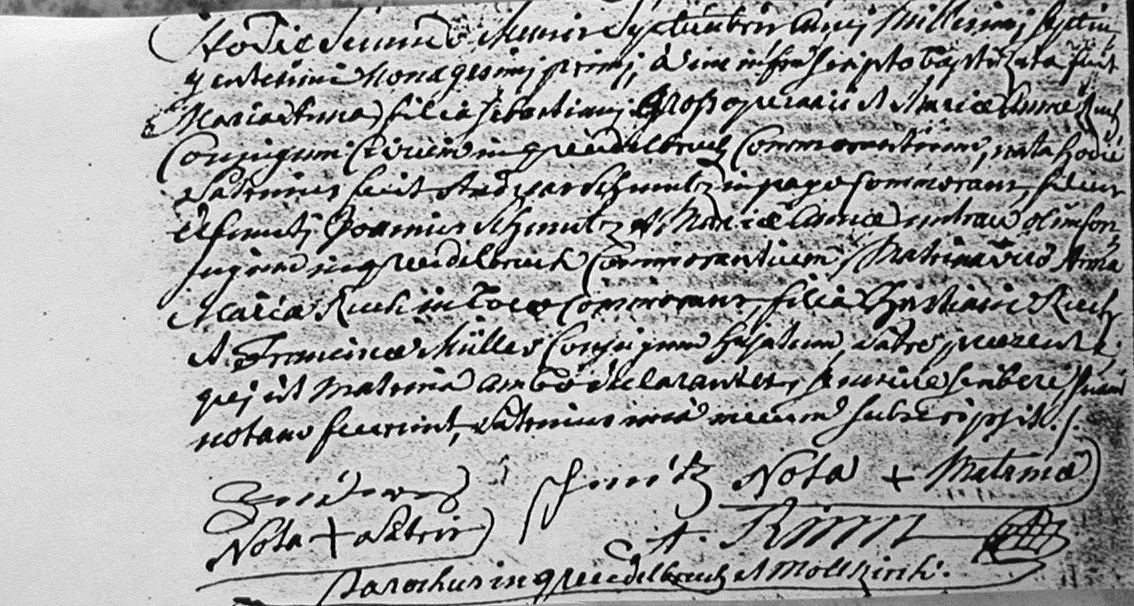 Hodie Mensis Septembris anni Millesimi septin
gentesimi Nonagesimi primi, à me infra scripto baptizata fuit
Maria Anna filia Sebastiani Gross operarii et Mariæ Annæ Ruch
Conjugum Civium in greudelbruch Commorantium, nata hodie
Patrinus fuit Andreas Schmutz in pago Commorans, filius
defuncti Joannis Schmutz et Mariæ Annæ olim Con
jugum in greudelbruch Commorantium, Matrina vero Anna
Maria Ruch in Loco Commorans, filia Christiani Ruch
et Franciscæ Müller Conjugum, patre præsente,
qui ut Matrina ambo declarantes, se nescire scribere suam
notam fecerunt, Patrinus una mecum subscripsit.
Andreas Schmutz Nota + Matrinæ
Nota + Patris
A. Rimm
Parochus in greudelbruch et Mollkirch.